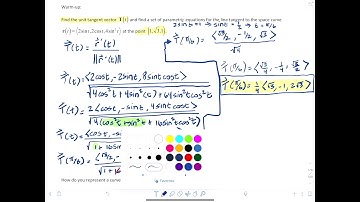 Warm-up:
Find the unit tangent vector T(t) and find a set of parametric equations for the line tangent to the space curve
r(t) = ⟨2sint, 2cost, 4sin²t⟩ at the point (1,√3,1).
2sint=1 → sint=1/2 → t=π/6
T(t) = r'(t) / ||r'(t)||
T(π/6) = ⟨√3/2, -1/2, √3⟩ / √4
T(t) = ⟨2cost, -2sint, 8sintcost⟩ / √(4cos²t+4sin²t+64sin²tcos²t)
T(π/6) = ⟨√3/4, -1/4, √3/2⟩
T(π/6) = 1/4 ⟨√3, -1, 2√3⟩
T(t) = 2⟨cost, -sint, 4sintcost⟩ / √(4(cos²t+sin²t+16sin²tcos²t))
T(t) = ⟨cost, -sint
T(π/6) = ⟨√3/2,
How do you represent a curve